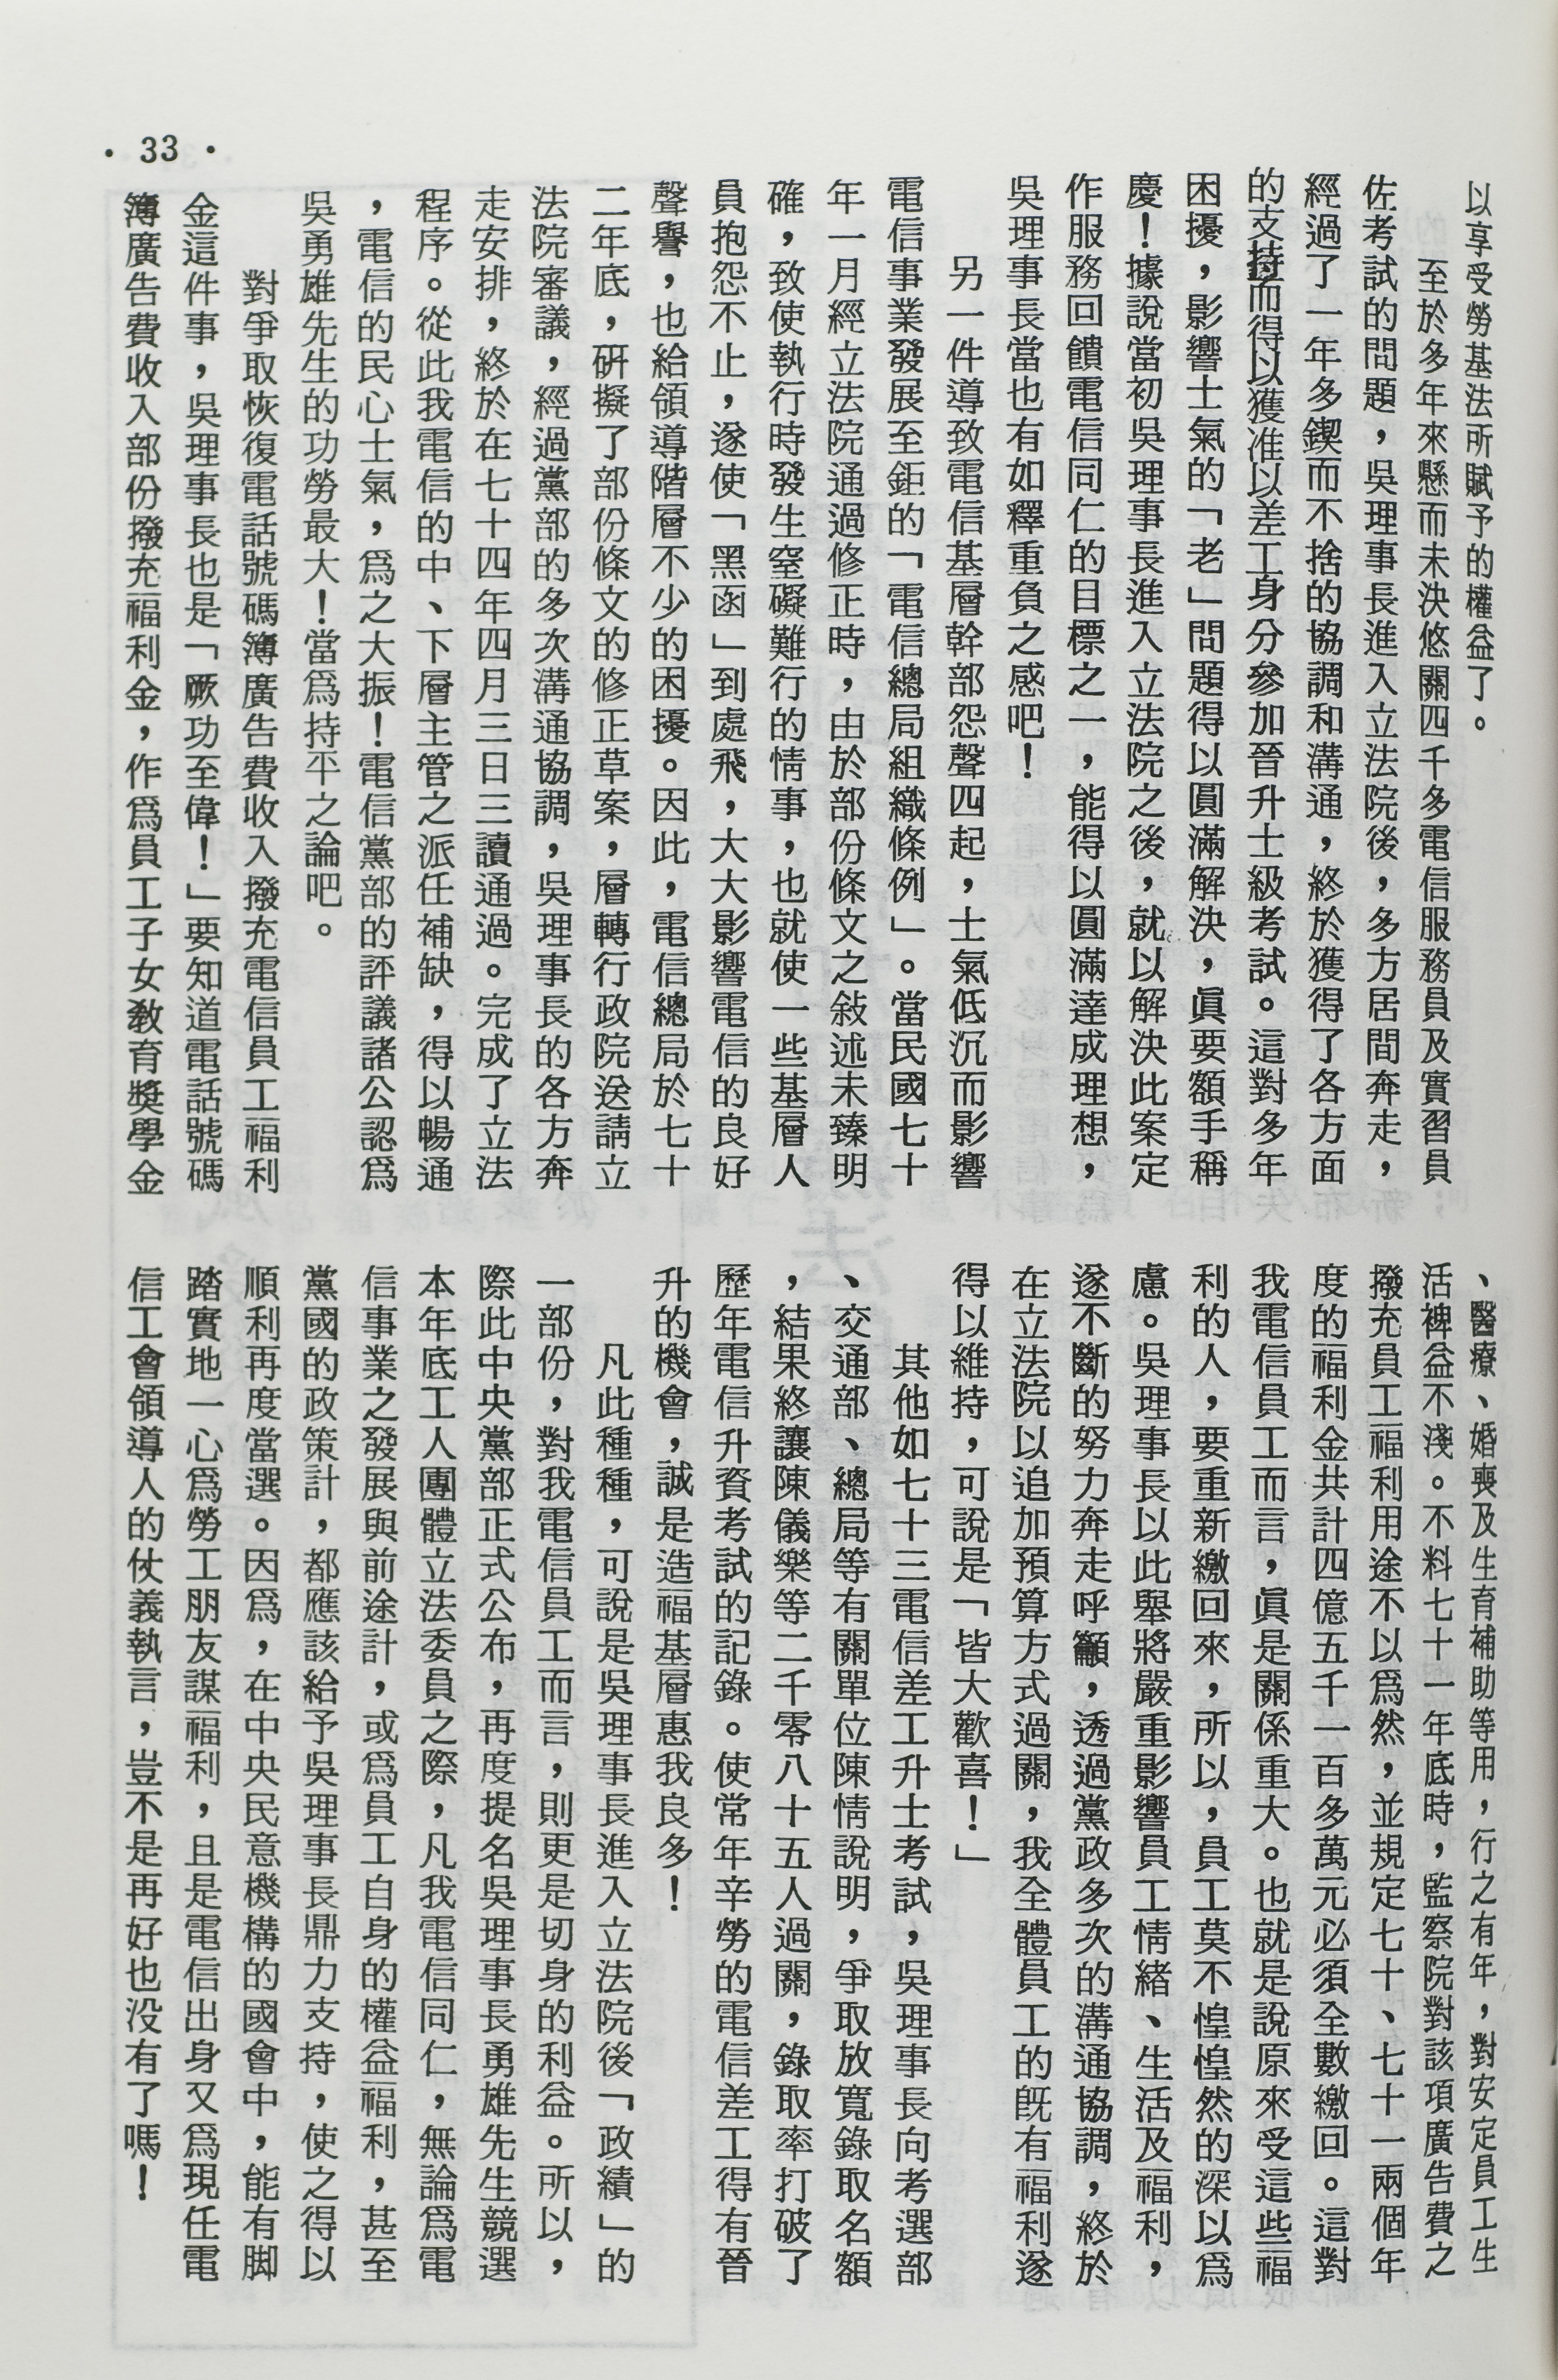 以享受勞基法所賦予的權益了。
至於多年來懸而未決悠關四千多電信服務員及實習員
佐考試的問題，吳理事長進入立法院後，多方居間奔走，
經過了一年多鍥而不捨的協調和溝通，終於獲得了各方面
的支持而得以獲准以差工身分參加晉升士級考試。這對多年
困擾，影響士氣的「老」問題得以圓滿解決，眞要額手稱
慶！據說當初吳理事長進入立法院之後，就以解決此案定
作服務回饋電信同仁的目標之一，能得以圓滿達成理想，
吳理事長當也有如釋重負之感吧！
另一件導致電信基層幹部怨聲四起，士氣低沉而影響
電信事業發展至鉅的「電信總局組織條例」。當民國七十
年一月經立法院通過修正時，由於部份條文之敍述未臻明
確，致使執行時發生窒礙難行的情事，也就使一些基層人
員抱怨不止，遂使「黑函」到處飛，大大影響電信的良好
聲譽，也給領導階層不少的困擾。因此，電信總局於七十
二年底，硏擬了部份條文的修正草案，層轉行政院送請立
法院審議，經過黨部的多次溝通協調，吳理事長的各方奔
走安排，終於在七十四年四月三日三讀通過。完成了立法
程序。從此我電信的中、下層主管之派任補缺，得以暢通
，電信的民心士氣，爲之大振！電信黨部的評議諸公認爲
吳勇雄先生的功勞最大！當爲持平之論吧。
對爭取恢復電話號碼簿廣告費收入撥充電信員工福利
金這件事，吳理事長也是「厥功至偉！」要知道電話號碼
簿廣告費收入部份撥充福利金，作爲員工子女敎育獎學金
、醫療、婚喪及生育補助等用，行之有年，對安定員工生
活裨益不淺。不料七十一年底時，監察院對該項廣告費之
撥充員工福利用途不以爲然，並規定七十、七十一兩個年
度的福利金共計四億五千一百多萬元必須全數繳回。這對
我電信員工而言，眞是關係重大。也就是說原來受這些福
利的人，要重新繳回來，所以，員工莫不惶惶然的深以爲
慮。吳理事長以此舉將嚴重影響員工情緒、生活及福利，
遂不斷的努力奔走呼籲，透過黨政多次的溝通協調，終於
在立法院以追加預算方式過關，我全體員工的旣有福利遂
得以維持，可說是「皆大歡喜！」
其他如七十三電信差工升士考試，吳理事長向考選部
、交通部、總局等有關單位陳情說明，爭取放寬錄取名額
，結果終讓陳儀樂等二千零八十五人過關，錄取率打破了
歷年電信升資考試的記錄。使常年辛勞的電信差工得有晉
升的機會，誠是造福基層惠我良多！
凡此種種，可說是吳理事長進入立法院後「政績」的
一部份，對我電信員工而言，則更是切身的利益。所以，
際此中央黨部正式公布，再度提名吳理事長勇雄先生競選
本年底工人團體立法委員之際，凡我電信同仁，無論爲電
信事業之發展與前途計，或爲員工自身的權益福利，甚至
黨國的政策計，都應該給予吳理事長鼎力支持，使之得以
順利再度當選。因爲，在中央民意機構的國會中，能有脚
踏實地一心爲勞工朋友謀福利，且是電信出身又爲現任電
信工會領導人的仗義執言，豈不是再好也沒有了嗎！
· 33 ·